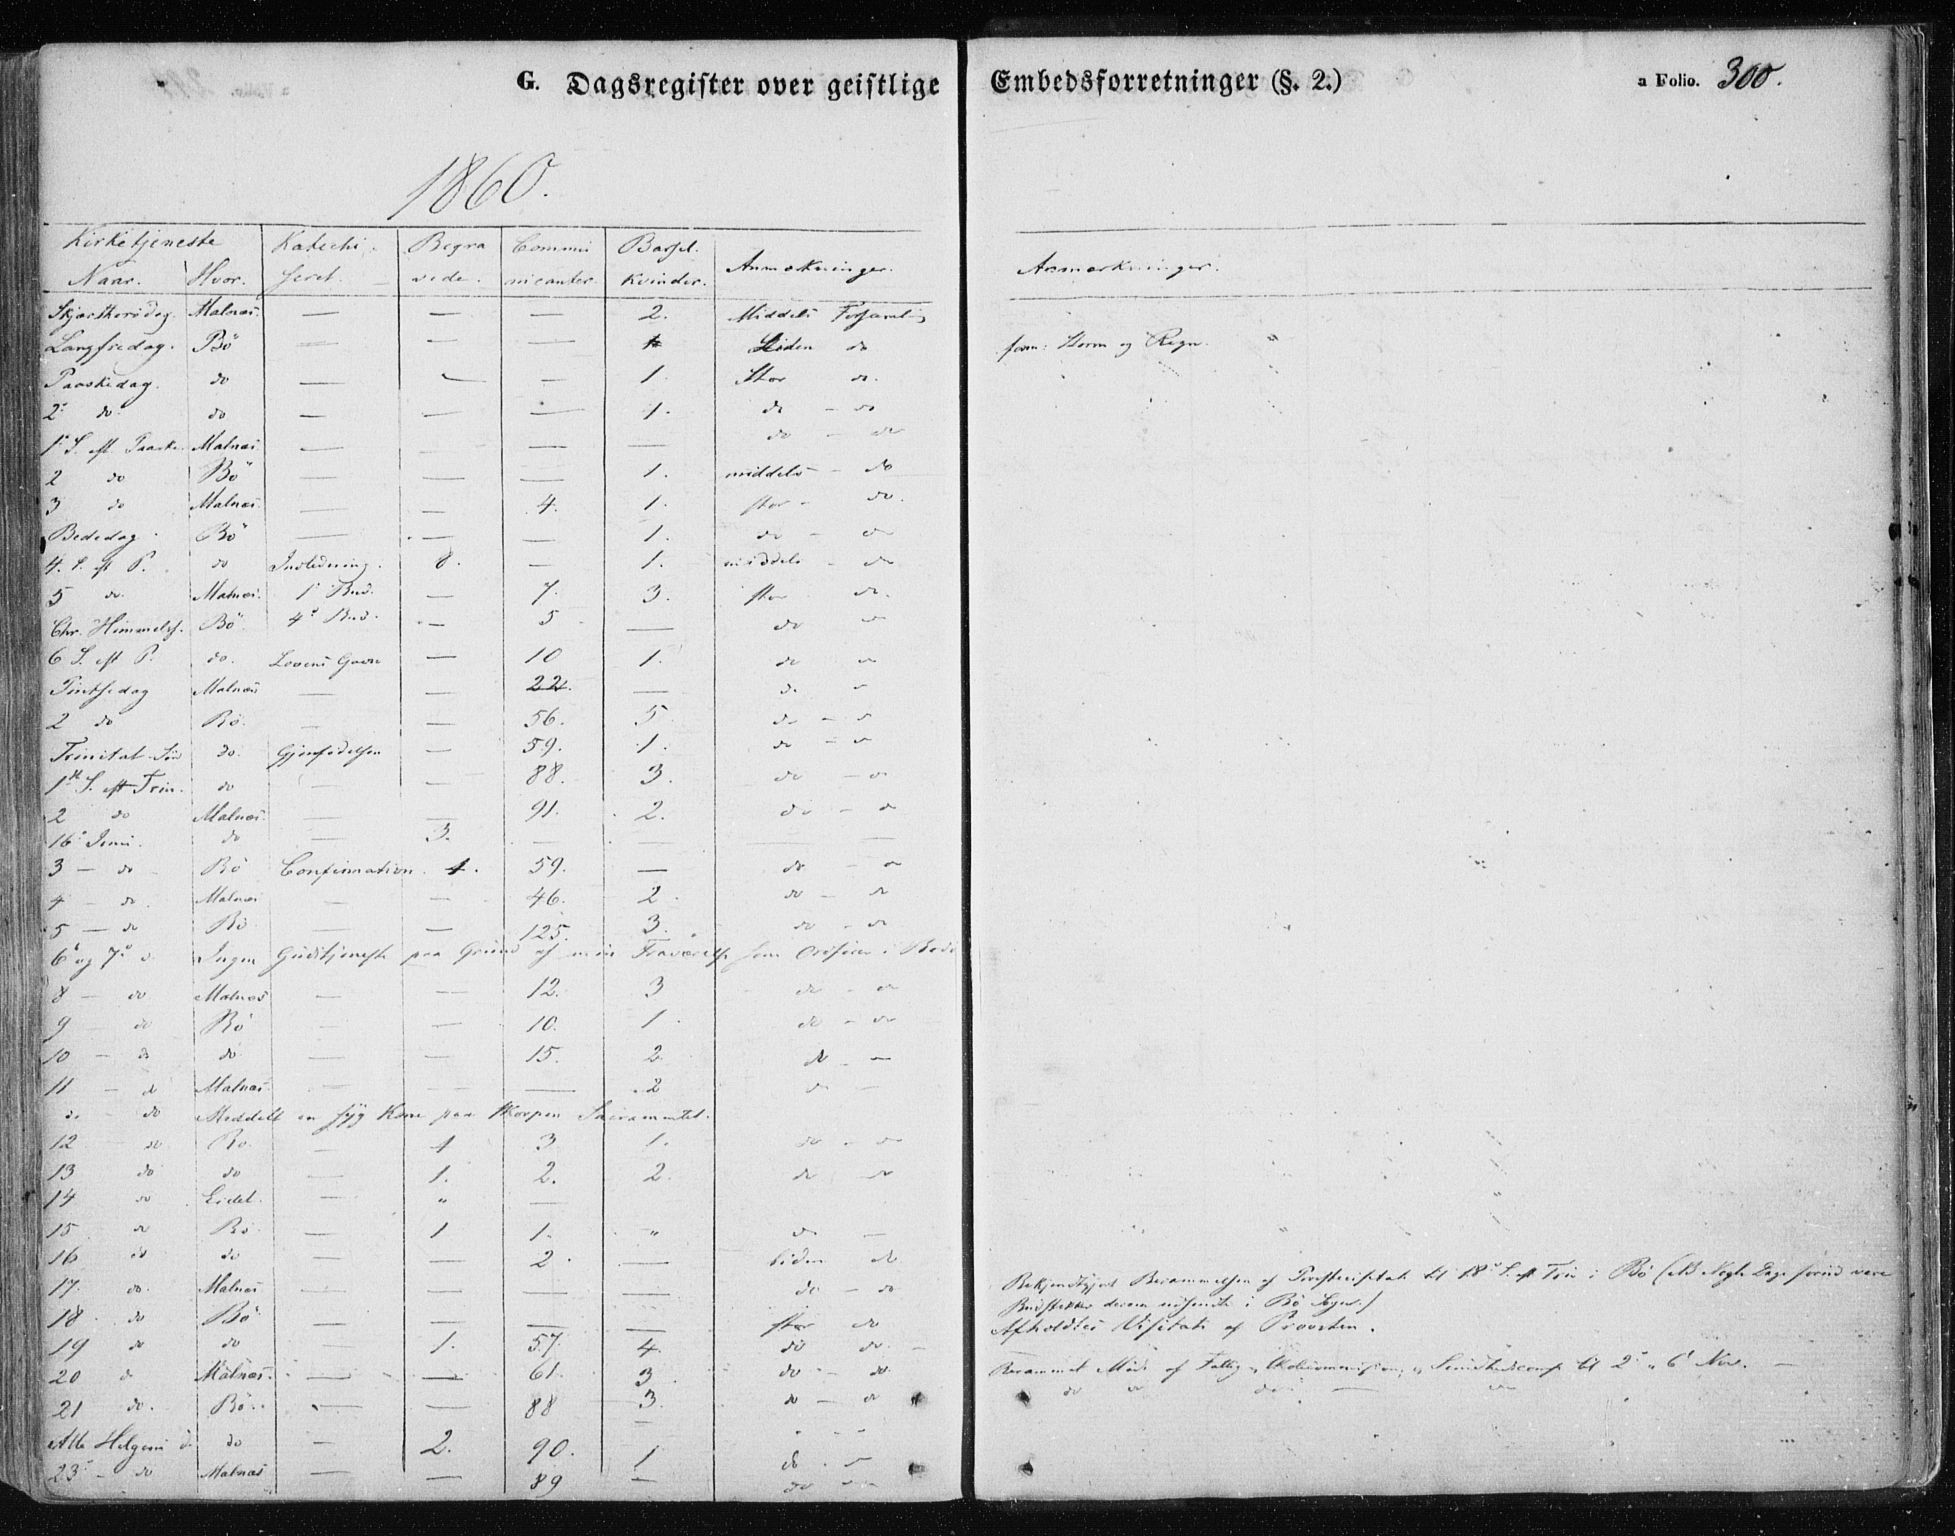 G. Dagsregister over geistlige Embedsforretninger (§. 2.) a Folio. 300.
1860.
Kirketjeneste Katechi- Begra Commu Barsel. Anmærkninger. Anmærkninger.
Naar. Hvor. seret. vede. nicanter kvinder.
Skjærthorsdag. Malnæs. — — — 2. Middels Forsamling
Langfredag. Bö — — — Liden do Storm og Regn.
Paaskedag. do — — — 1. Stor do.
2 do do — — — 1. do - do
1 S. eft Paaske. Malnæs — — — — do - do
2 do Bö — — — 1. middels - do
3 do Malnæs. — — 4. 1. stor - do.
Bededag. Bö — — — 1. do - do
4. S. eft P. do Indledning. 8. — 1. middels - do
5 do. Malnæs. 1 Bud. — 7. 3. stor do.
Chr. Himmelsf. Bö 4 Bud. — 5 — do do
6 S. eft P. do. Lovens Gavn — 10 1. do do
Pintsedag Malnæs — — 22. — do do
2 do Bö. — — 56. 5. do - do
Trinitat. Sön do. Gjenfödelsen — 59. 1. do - do
1 S. eft Trin. do — — 88. 3. do - do
2 do Malnæs — — 91. 2. do - do
16 Juni. do — 3. — — —
3 - do Bö Confirmation. 1. 59. — do - do
4 - do. Malnæs — — 46. 2. do - do
5 - do Bö. — — 125. 3. do - do
6 og 7 do Ingen Gudstjeneste paa Grund af min Fraværelse som i Bodö
8 - do Malnæs — — 12. 3 do - do
9 - do Bö — — 10. 1. do - do
10 - do do — — 15. 2 do -
11 - do Malnæs — — — 2 do -
do do Meddelt en syg Kone paa Skorpen Sacramentet.
12 do Bö. — 1 3 1. do - do
13 do do — 1. 2. 2. do do
14 do Eidet. — " —
15 do Bö. — 1 1. " do -
16 do do — — 2. — liden do
17. do. Malnæs — — — — do - do Bekjendtgjort Berammelsen af Provstevisitats til 18 S. eft Trin i Bö (NB Dage forud være
Budstikker derom udsendte i Bö Sogn.)
18. do Bö — — — — stor do Afholdtes Visitats af Provsten.
19 do do — 1. 57. 4. do do. -
20 do Malnæs. — — 61. 3. do - do Berammet Möde af Fattig, Skolecommission, Sundhedscomm til 2 6 Nov. —
21 do. Bö. — — 88 3. do - do do do do — do
Alle Helgens d. do — 2. 90. 1 do. -
23 - do Malnæs — — 89 — do - -